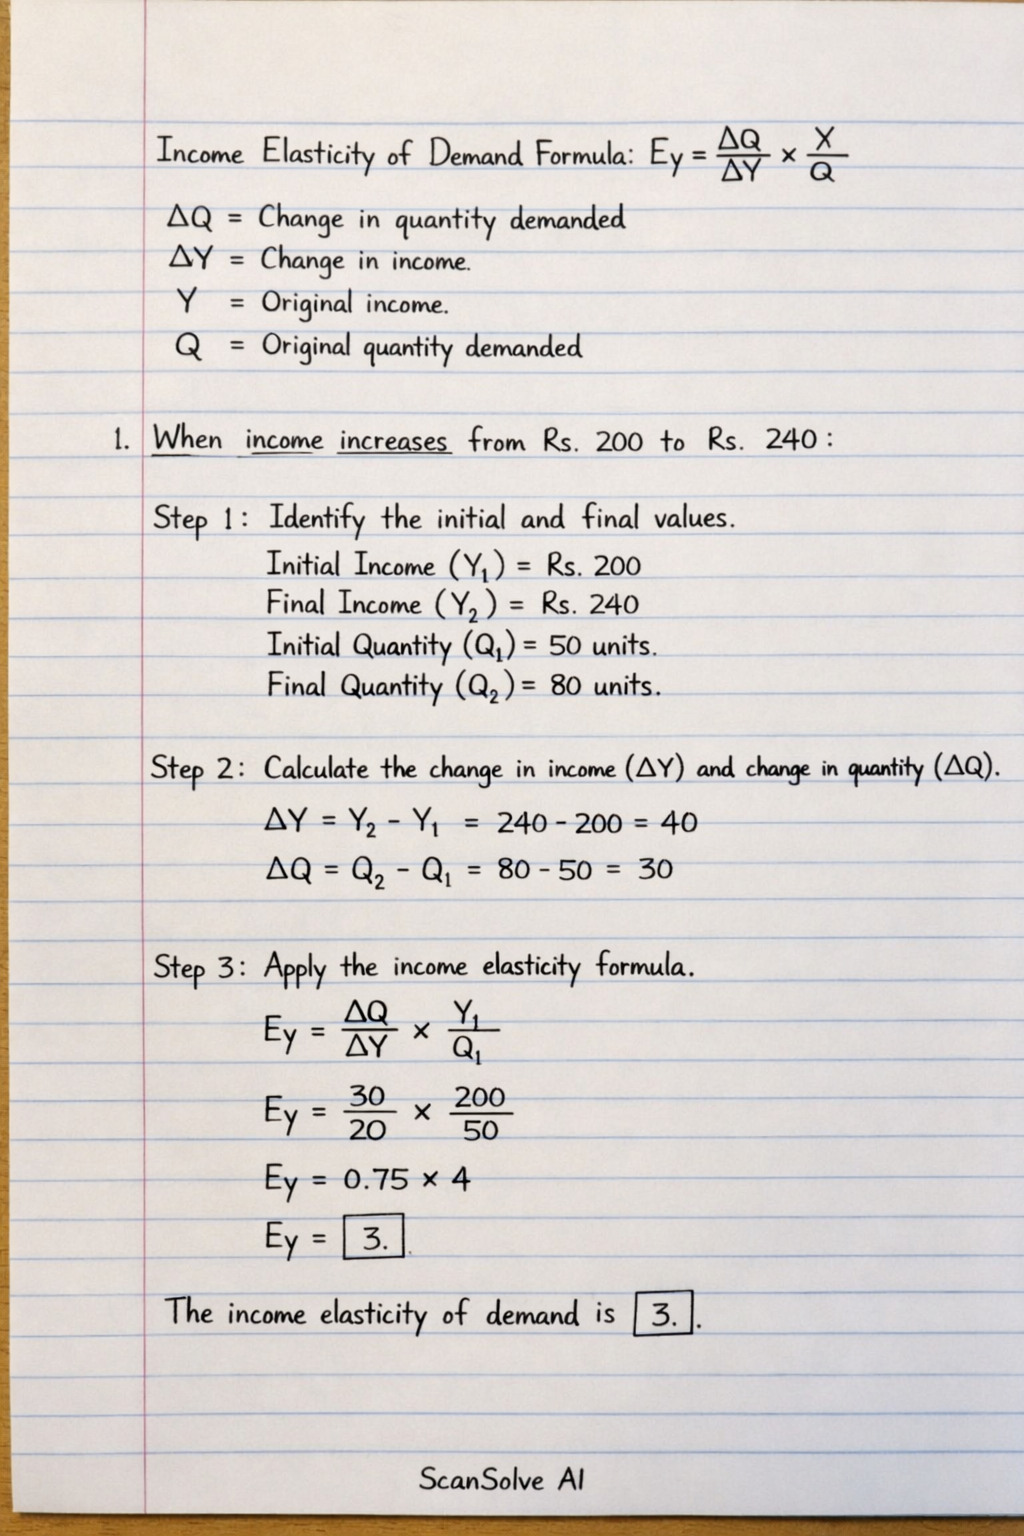 Income Elasticity of Demand Formula: Ey = ΔQ/ΔY × X/Q
ΔQ = Change in quantity demanded
ΔY = Change in income.
Y = Original income.
Q = Original quantity demanded
1. When income increases from Rs. 200 to Rs. 240 :
Step 1: Identify the initial and final values.
Initial Income (Y₁) = Rs. 200
Final Income (Y₂) = Rs. 240
Initial Quantity (Q₁) = 50 units.
Final Quantity (Q₂) = 80 units.
Step 2: Calculate the change in income (ΔY) and change in quantity (ΔQ).
ΔY = Y₂ - Y₁ = 240 - 200 = 40
ΔQ = Q₂ - Q₁ = 80 - 50 = 30
Step 3: Apply the income elasticity formula.
Ey = ΔQ/ΔY × Y₁/Q₁
Ey = 30/20 × 200/50
Ey = 0.75 × 4
Ey = 3.
The income elasticity of demand is 3. .
ScanSolve AI